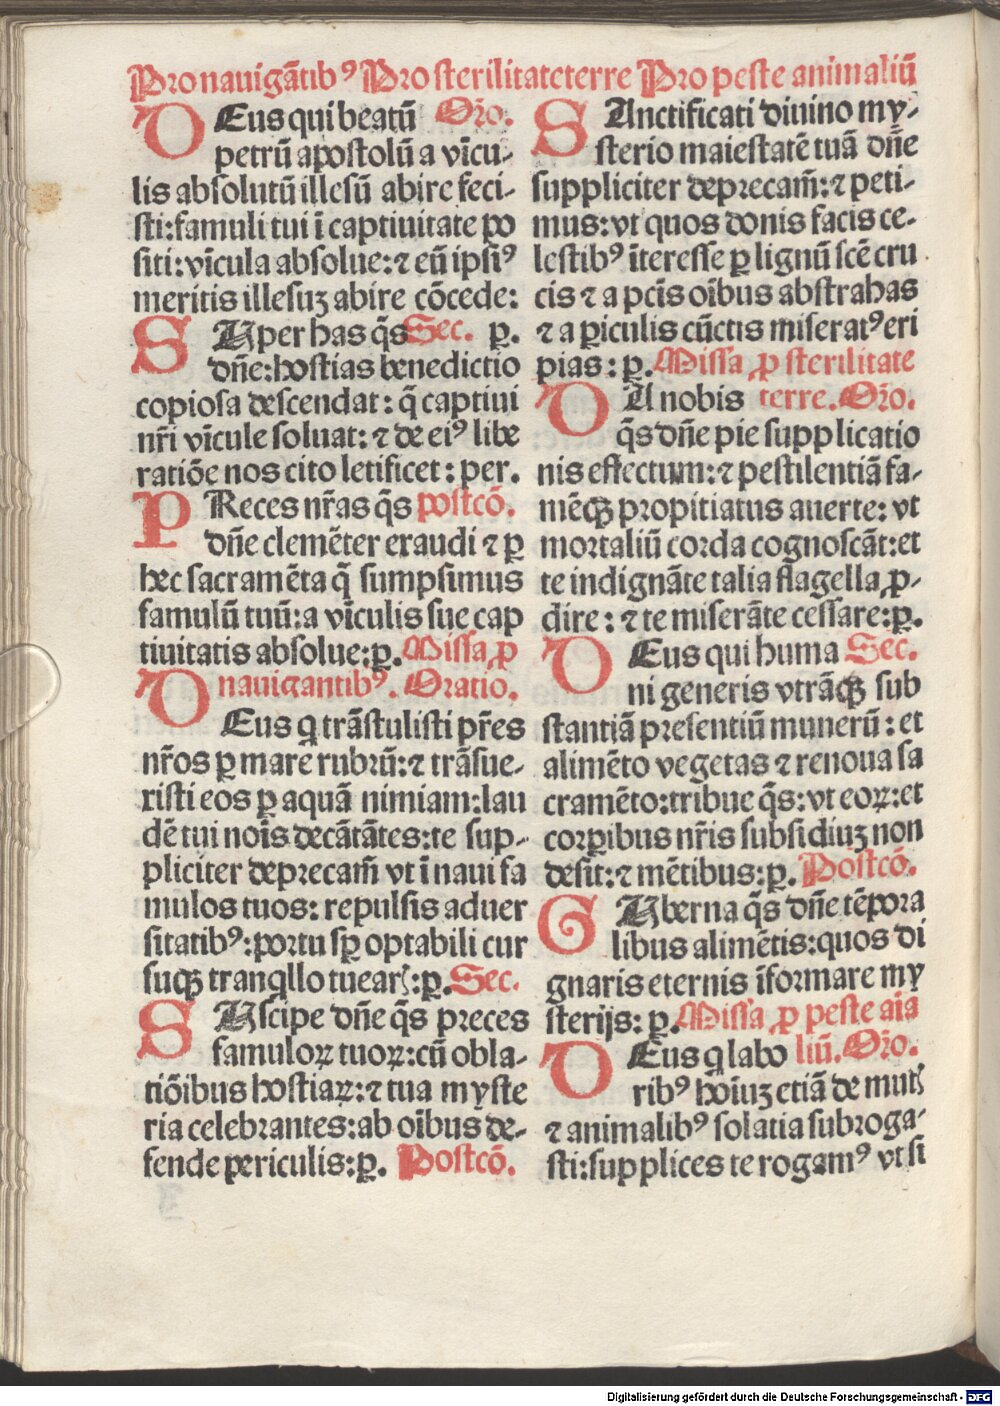 Pro nauigātibꝰ Pro sterilitate terre Pro peste animaliū
DEus qui beatū Orō.
petrū apostolū a vīcu-
lis absolutū illesū abire feci-
sti: famuli tui ī captiuitate po
siti: vīcula absolue: ⁊ eū ipsiꝰ
meritis illesuꝫ abire cōcede:
SUper has q̄s Sec. ꝑ.
dn̄e: hostias benedictio
copiosa descendat: q̄ captiui
nr̄i vīcule soluat: ⁊ de eiꝰ libe
ratiōe nos cito letificet: per.
PReces nr̄as q̄s postcō.
dn̄e clemēter eraudi ⁊ ꝑ
hec sacramēta q̄ sumpsimus
famulū tuū: a vīculis sue cap
tiuitatis absolue: ꝑ. Missa ꝓ
nauigantibꝰ. Oratio.
DEus q trāstulisti pr̄es
nr̄os ꝑ mare rubrū: ⁊ trāsue-
risti eos ꝑ aquā nimiam: lau
dē tui noīs decātātes: te sup-
pliciter deprecam̄ vt ī naui fa
mulos tuos: repulsis aduer
sitatibꝰ: portu sꝑ optabili cur
suqꝫ tranqllo tuearꝭ: ꝑ. Sec.
SUscipe dn̄e q̄s preces
famuloꝝ tuoꝝ: cū obla-
tiōibus hostiaꝝ: ⁊ tua myste
ria celebrantes: ab oībus de-
fende periculis: ꝑ. Postcō.
SAnctificati diuino my-
sterio maiestatē tuā dn̄e
suppliciter deprecam̄: ⁊ peti-
mus: vt quos donis facis ce-
lestibꝰ īteresse ꝑ lignū scē cru
cis ⁊ a pcīs oībus abstrahas
⁊ a ꝑiculis cūctis miseratꝰ eri
pias: ꝑ. Missa ꝓ sterilitate
DA nobis terre. Orō.
q̄s dn̄e pie supplicatio
nis effectum: ⁊ pestilentiā fa-
mēqꝫ propitiatus auerte: vt
mortaliū corda cognoscāt: et
te indignāte talia flagella ꝓ-
dire: ⁊ te miserāte cessare: ꝑ.
DEus qui huma Sec.
ni generis vtrāqꝫ sub
stantiā presentiū munerū: et
alimēto vegetas ⁊ renoua sa
cramēto: tribue q̄s: vt eoꝝ: et
corꝑibus nr̄is subsidiuꝫ non
desit: ⁊ mētibus: ꝑ. Postcō.
GUberna q̄s dn̄e tēpora
libus alimētis: quos di
gnaris eternis īformare my
sterijs: ꝑ. Missa ꝓ peste aīa
DEus q labo liū. Orō.
ribꝰ hoīuꝫ etiā de mutꝭ
⁊ animalibꝰ solatia subroga-
sti: supplices te rogamꝰ vt si
Digitalisierung gefördert durch die Deutsche Forschungsgemeinschaft - DFG